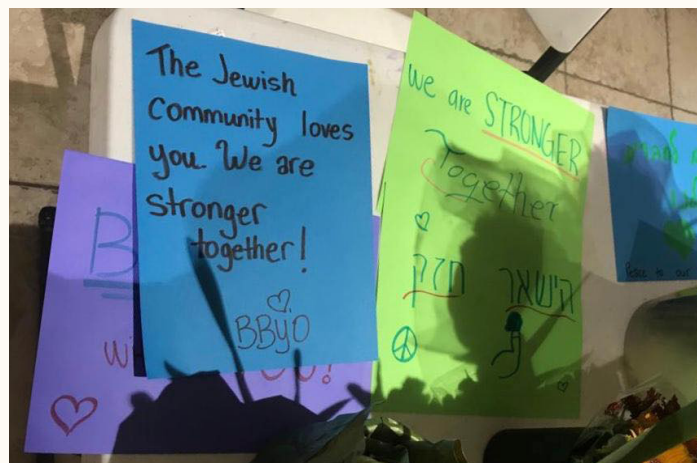 The Jewish
Community loves
you. We are
stronger
together!
BBYO
we are STRONGER
Together
חזק הישאר
Peace to our